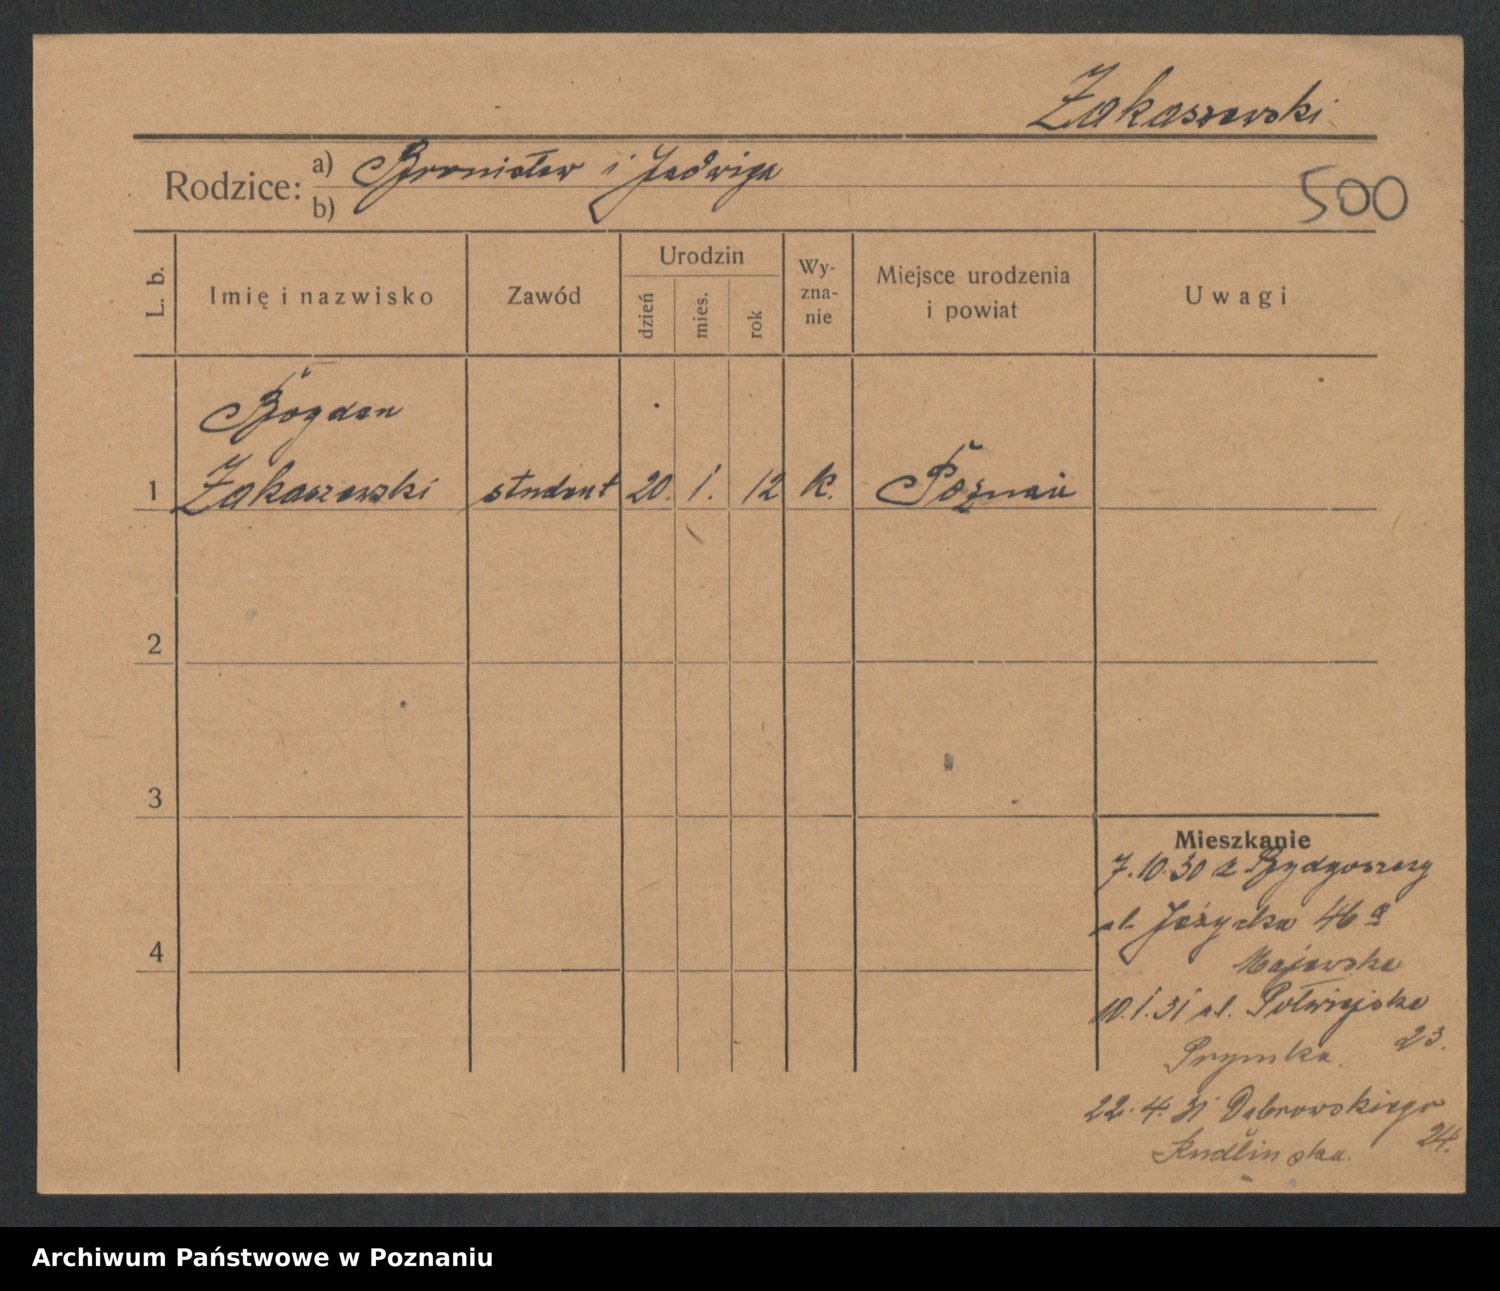 Zakaszewski
Rodzice: a) Bronisław i Jadwiga
b)
500
L. b.
Imię i nazwisko
Zawód
Urodzin
dzień
mies.
rok
Wy-
zna-
nie
Miejsce urodzenia
i powiat
Uwagi
Bogdan
1 Zakaszewski student 20. 1. 12 k. Poznań
2
3
4
Mieszkanie
7.10.30 z Bydgoszczy
ul. Jeżycka 46 a
Majewska
10.1.31 ul. Półwiejska
23.
Prymka.
22.4.31 Dąbrowskiego
24.
Archiwum Państwowe w Poznaniu